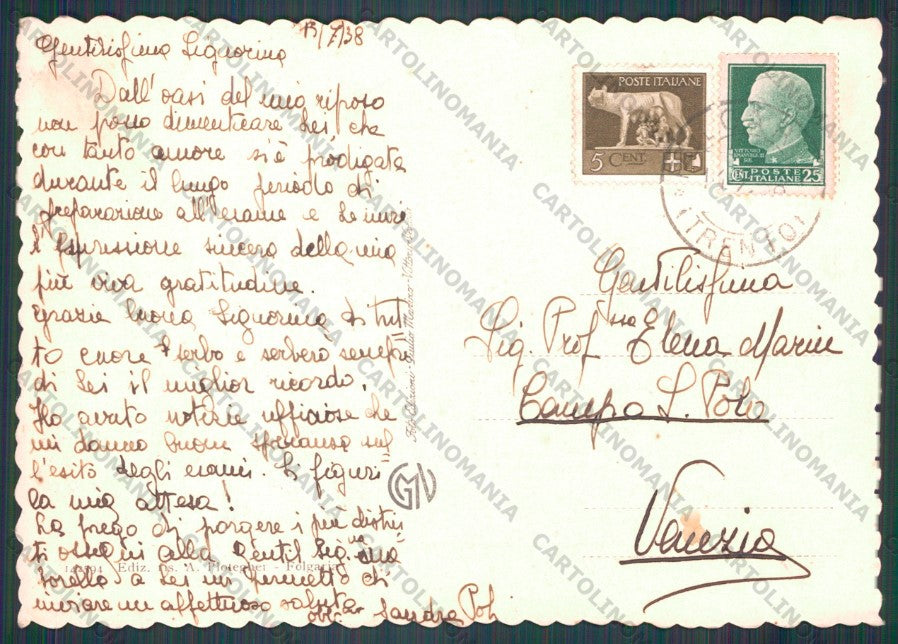 13/7/38
Gentilissima Signorina
Dall'oasi del mio riposo
non posso dimenticare Lei, che
con tanto amore si è prodigata
durante il lungo periodo di
preparazione all'esame e Le invio
l'espressione sincera della mia
più viva gratitudine.
Grazie buona Signorina di tut
to cuore serbo e serberò sempre
di Lei il miglior ricordo.
Ho avuto notizie ufficiose che
mi danno buone speranze sul
l'esito degli esami. Si figuri
la mia attesa!
La prego di porgere i più distin
ti ossequi alla gentil Sig.na sua
sorella a Lei mi permetto di
inviare un affettuoso saluto
Sandra Poli
POSTE ITALIANE
5 CENT.
VITTORIO EMANUELE III RE
POSTE ITALIANE
CENT. 25
(TRENTO)
Gentilissima
Sig. Prof.ssa Elena Marin
Campo S. Polo
Venezia
GN
Ediz. Ds. A. - Folgaria
CARTOLINOMANIA